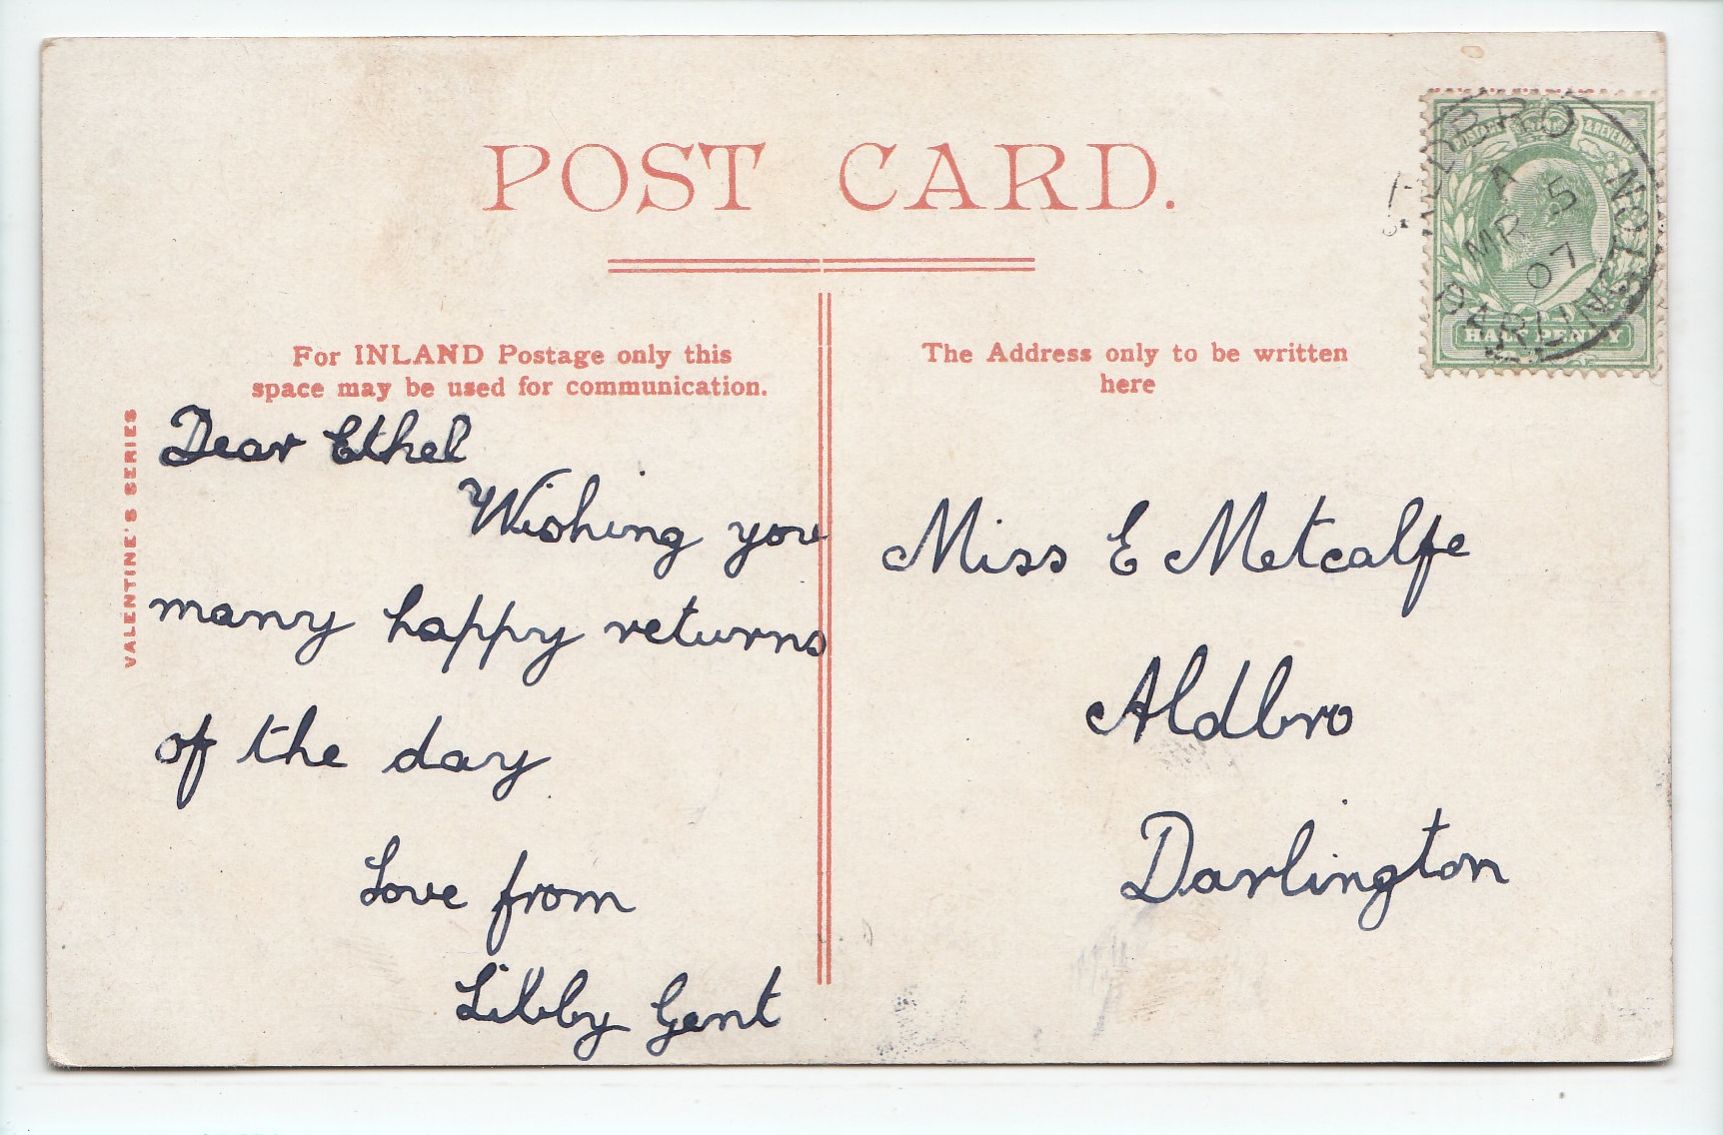 POST CARD.
For INLAND Postage only this
space may be used for communication.
The Address only to be written
here
VALENTINE'S SERIES
Dear Ethel
Wishing you
many happy returns
of the day
Love from
Libby Gent
Miss E Metcalfe
Aldbro
Darlington
POSTAGE & REVENUE
HALF PENNY
ALDBRO
A
MR 5
07
DARLINGTON